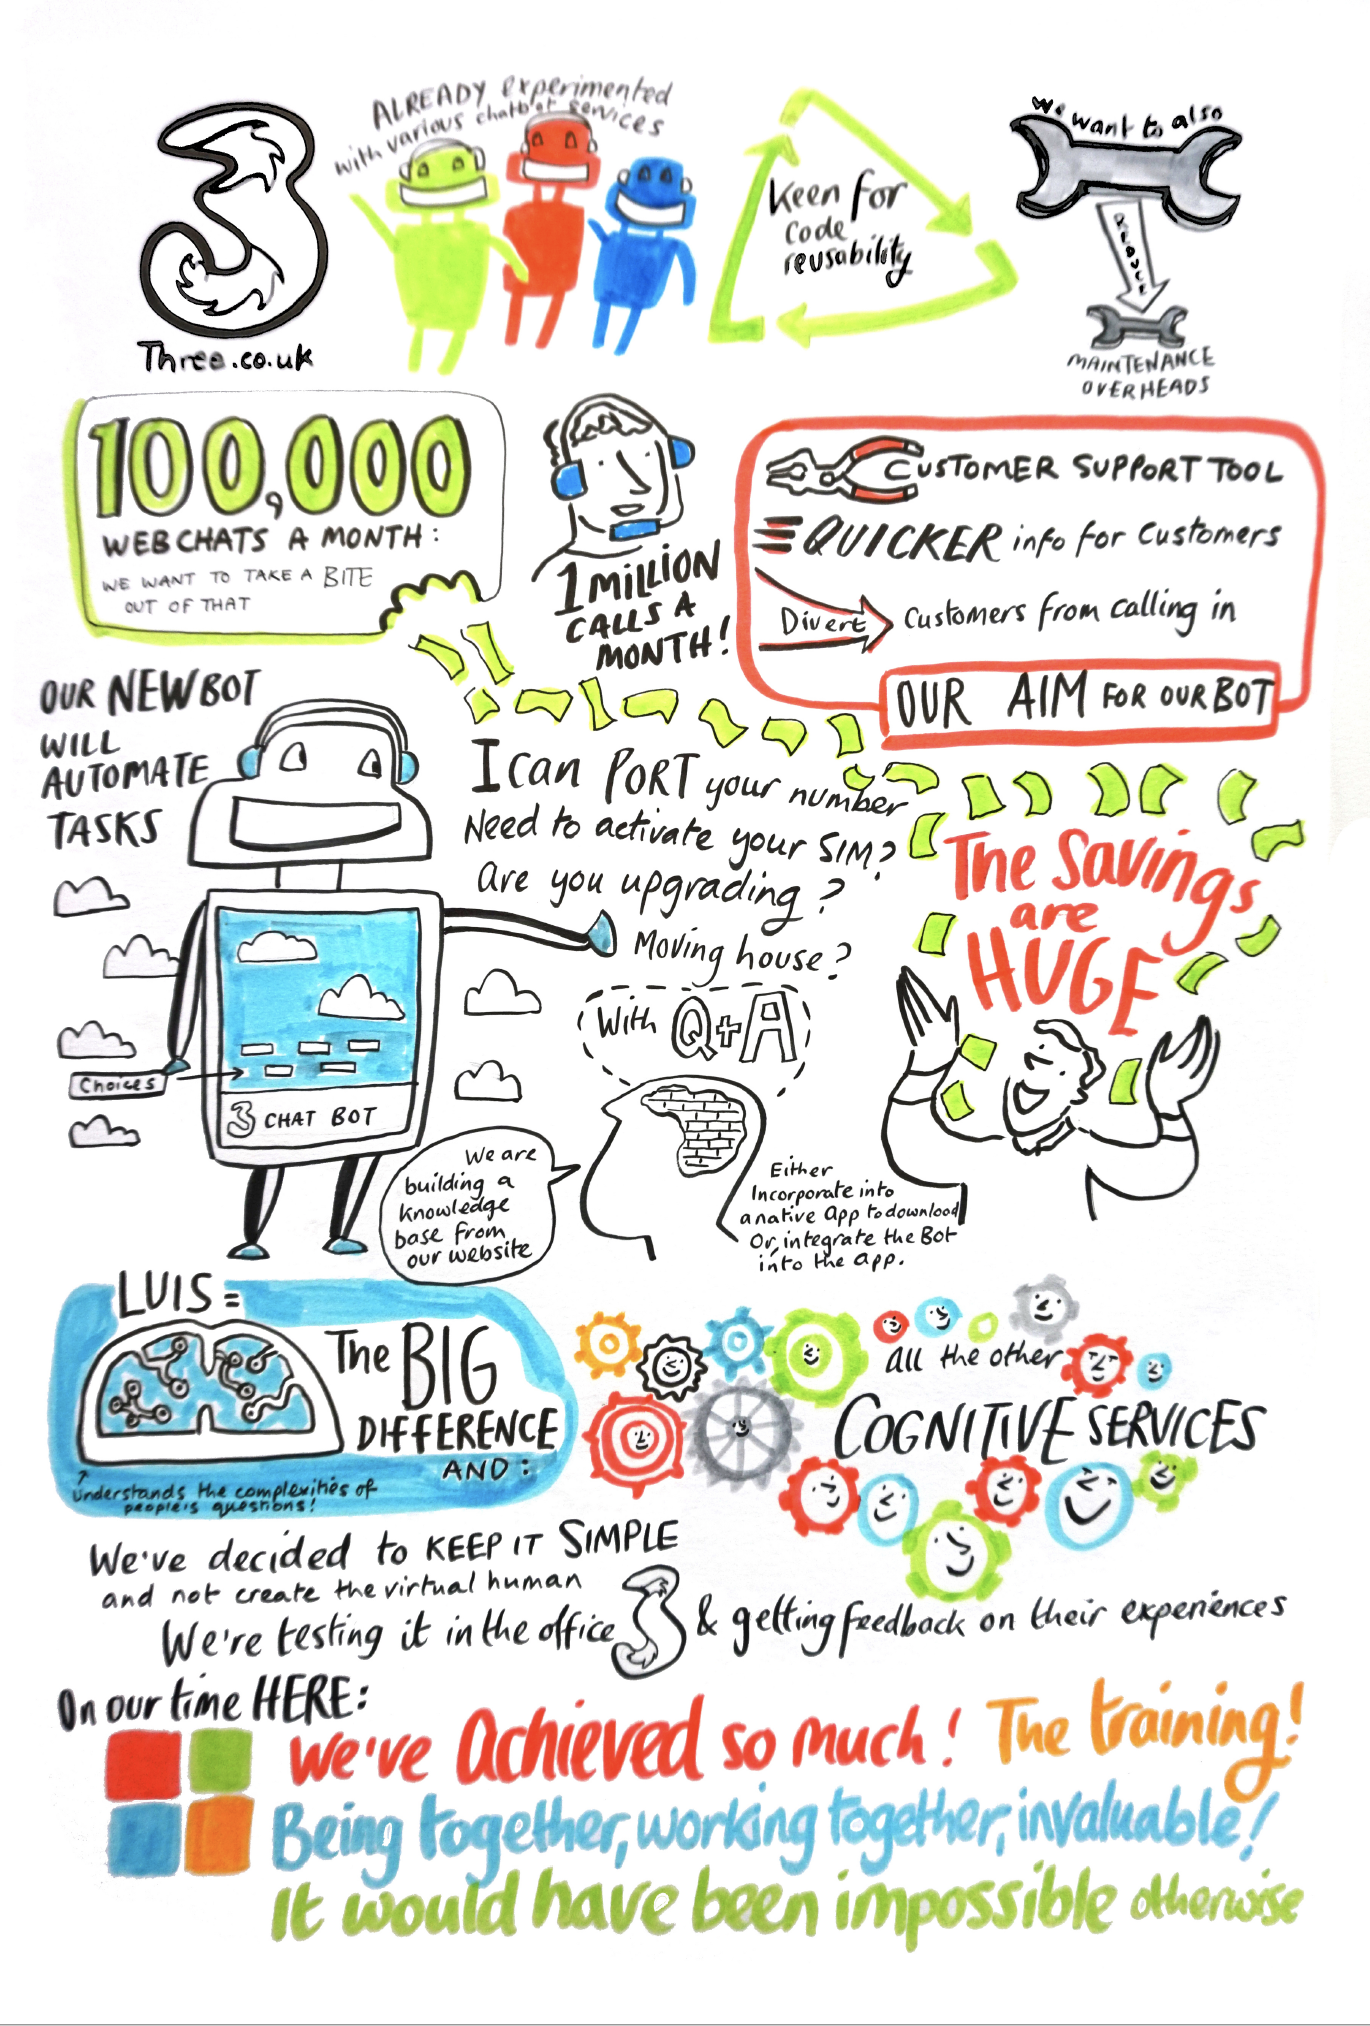 ALREADY experimented
with various chatbot services
Three.co.uk
Keen for
code
reusability
We want to also
REDUCE
MAINTENANCE
OVERHEADS
100,000
WEBCHATS A MONTH:
WE WANT TO TAKE A BITE
OUT OF THAT
1 MILLION
CALLS A
MONTH!
CUSTOMER SUPPORT TOOL
QUICKER info for Customers
Divert Customers from calling in
OUR AIM FOR OUR BOT
OUR NEW BOT
WILL
AUTOMATE
TASKS
Choices
3 CHAT BOT
I can PORT your number
Need to activate your SIM?
Are you upgrading?
Moving house?
With Q+A
The Savings
are
HUGE
We are
building a
knowledge
base from
our website
Either
Incorporate into
a native App to download
Or, integrate the Bot
into the app.
LUIS =
The BIG
DIFFERENCE
AND:
Understands the complexities of
people's questions!
all the other
COGNITIVE SERVICES
We've decided to KEEP IT SIMPLE
and not create the virtual human
We're testing it in the office 3 & getting feedback on their experiences
On our time HERE:
We've Achieved so much! The training!
Being together, working together, invaluable!
It would have been impossible otherwise